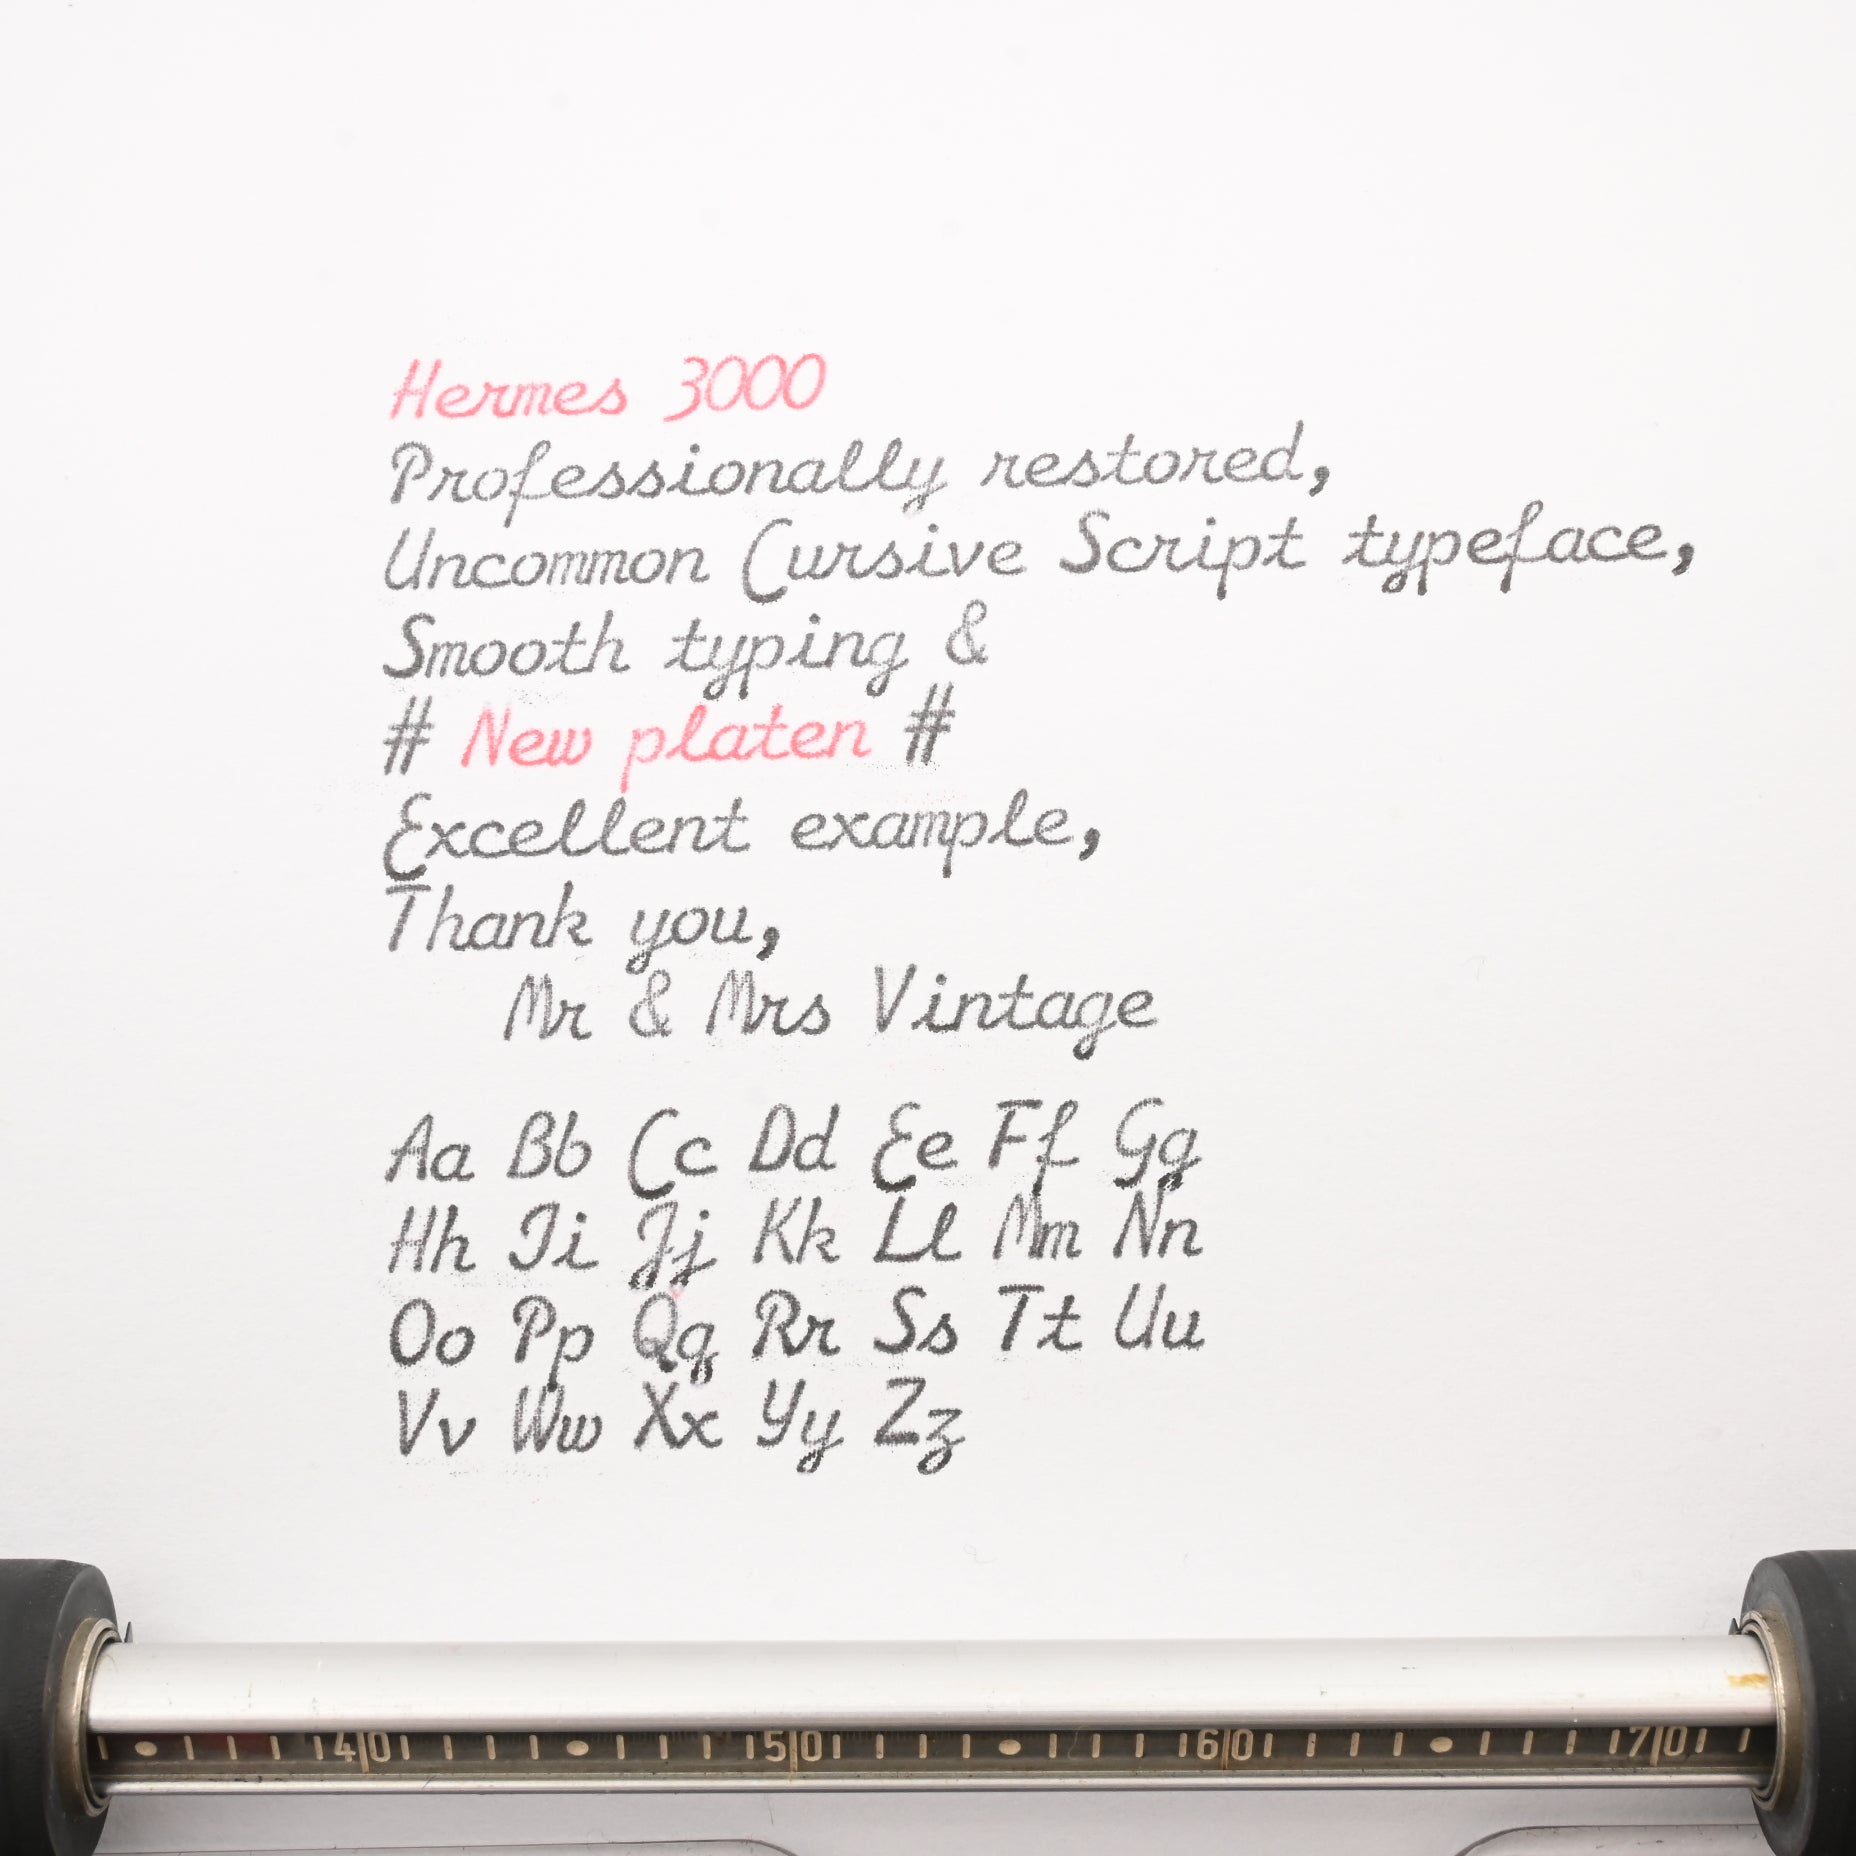 Hermes 3000
Professionally restored,
Uncommon Cursive Script typeface,
Smooth typing &
# New platen #
Excellent example,
Thank you,
Mr & Mrs Vintage
Aa Bb Cc Dd Ee Ff Gg
Hh Ii Jj Kk Ll Mm Nn
Oo Pp Qq Rr Ss Tt Uu
Vv Ww Xx Yy Zz
40 50 60 70